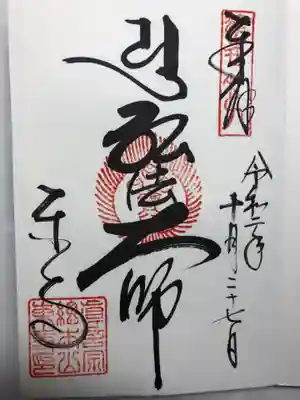 奉拝
令和二年
十月二十七日
弘法大師
東寺